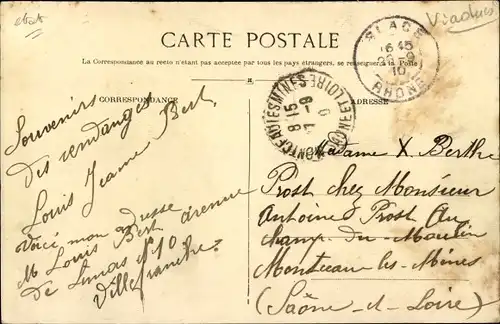 état
Viaducs
CARTE POSTALE
La Correspondance au recto n'étant pas acceptée par tous les pays étrangers, se renseigner à la Poste
CORRESPONDANCE
ADRESSE
BLACÉ
16 45
10
RHONE
MONTCEAU LES MINES
8 15
SAONE ET LOIRE
Souvenirs
des vendanges
Louis Jeanne Bert.
Voici mon adresse
M Louis Bert avenue
de Limas N° 10
Villefranche
Madame X. Berthe
Prost chez Monsieur
Antoine Prost Au
Champ-du-Moulin
Montceau les-Mines
(Saône-et-Loire)